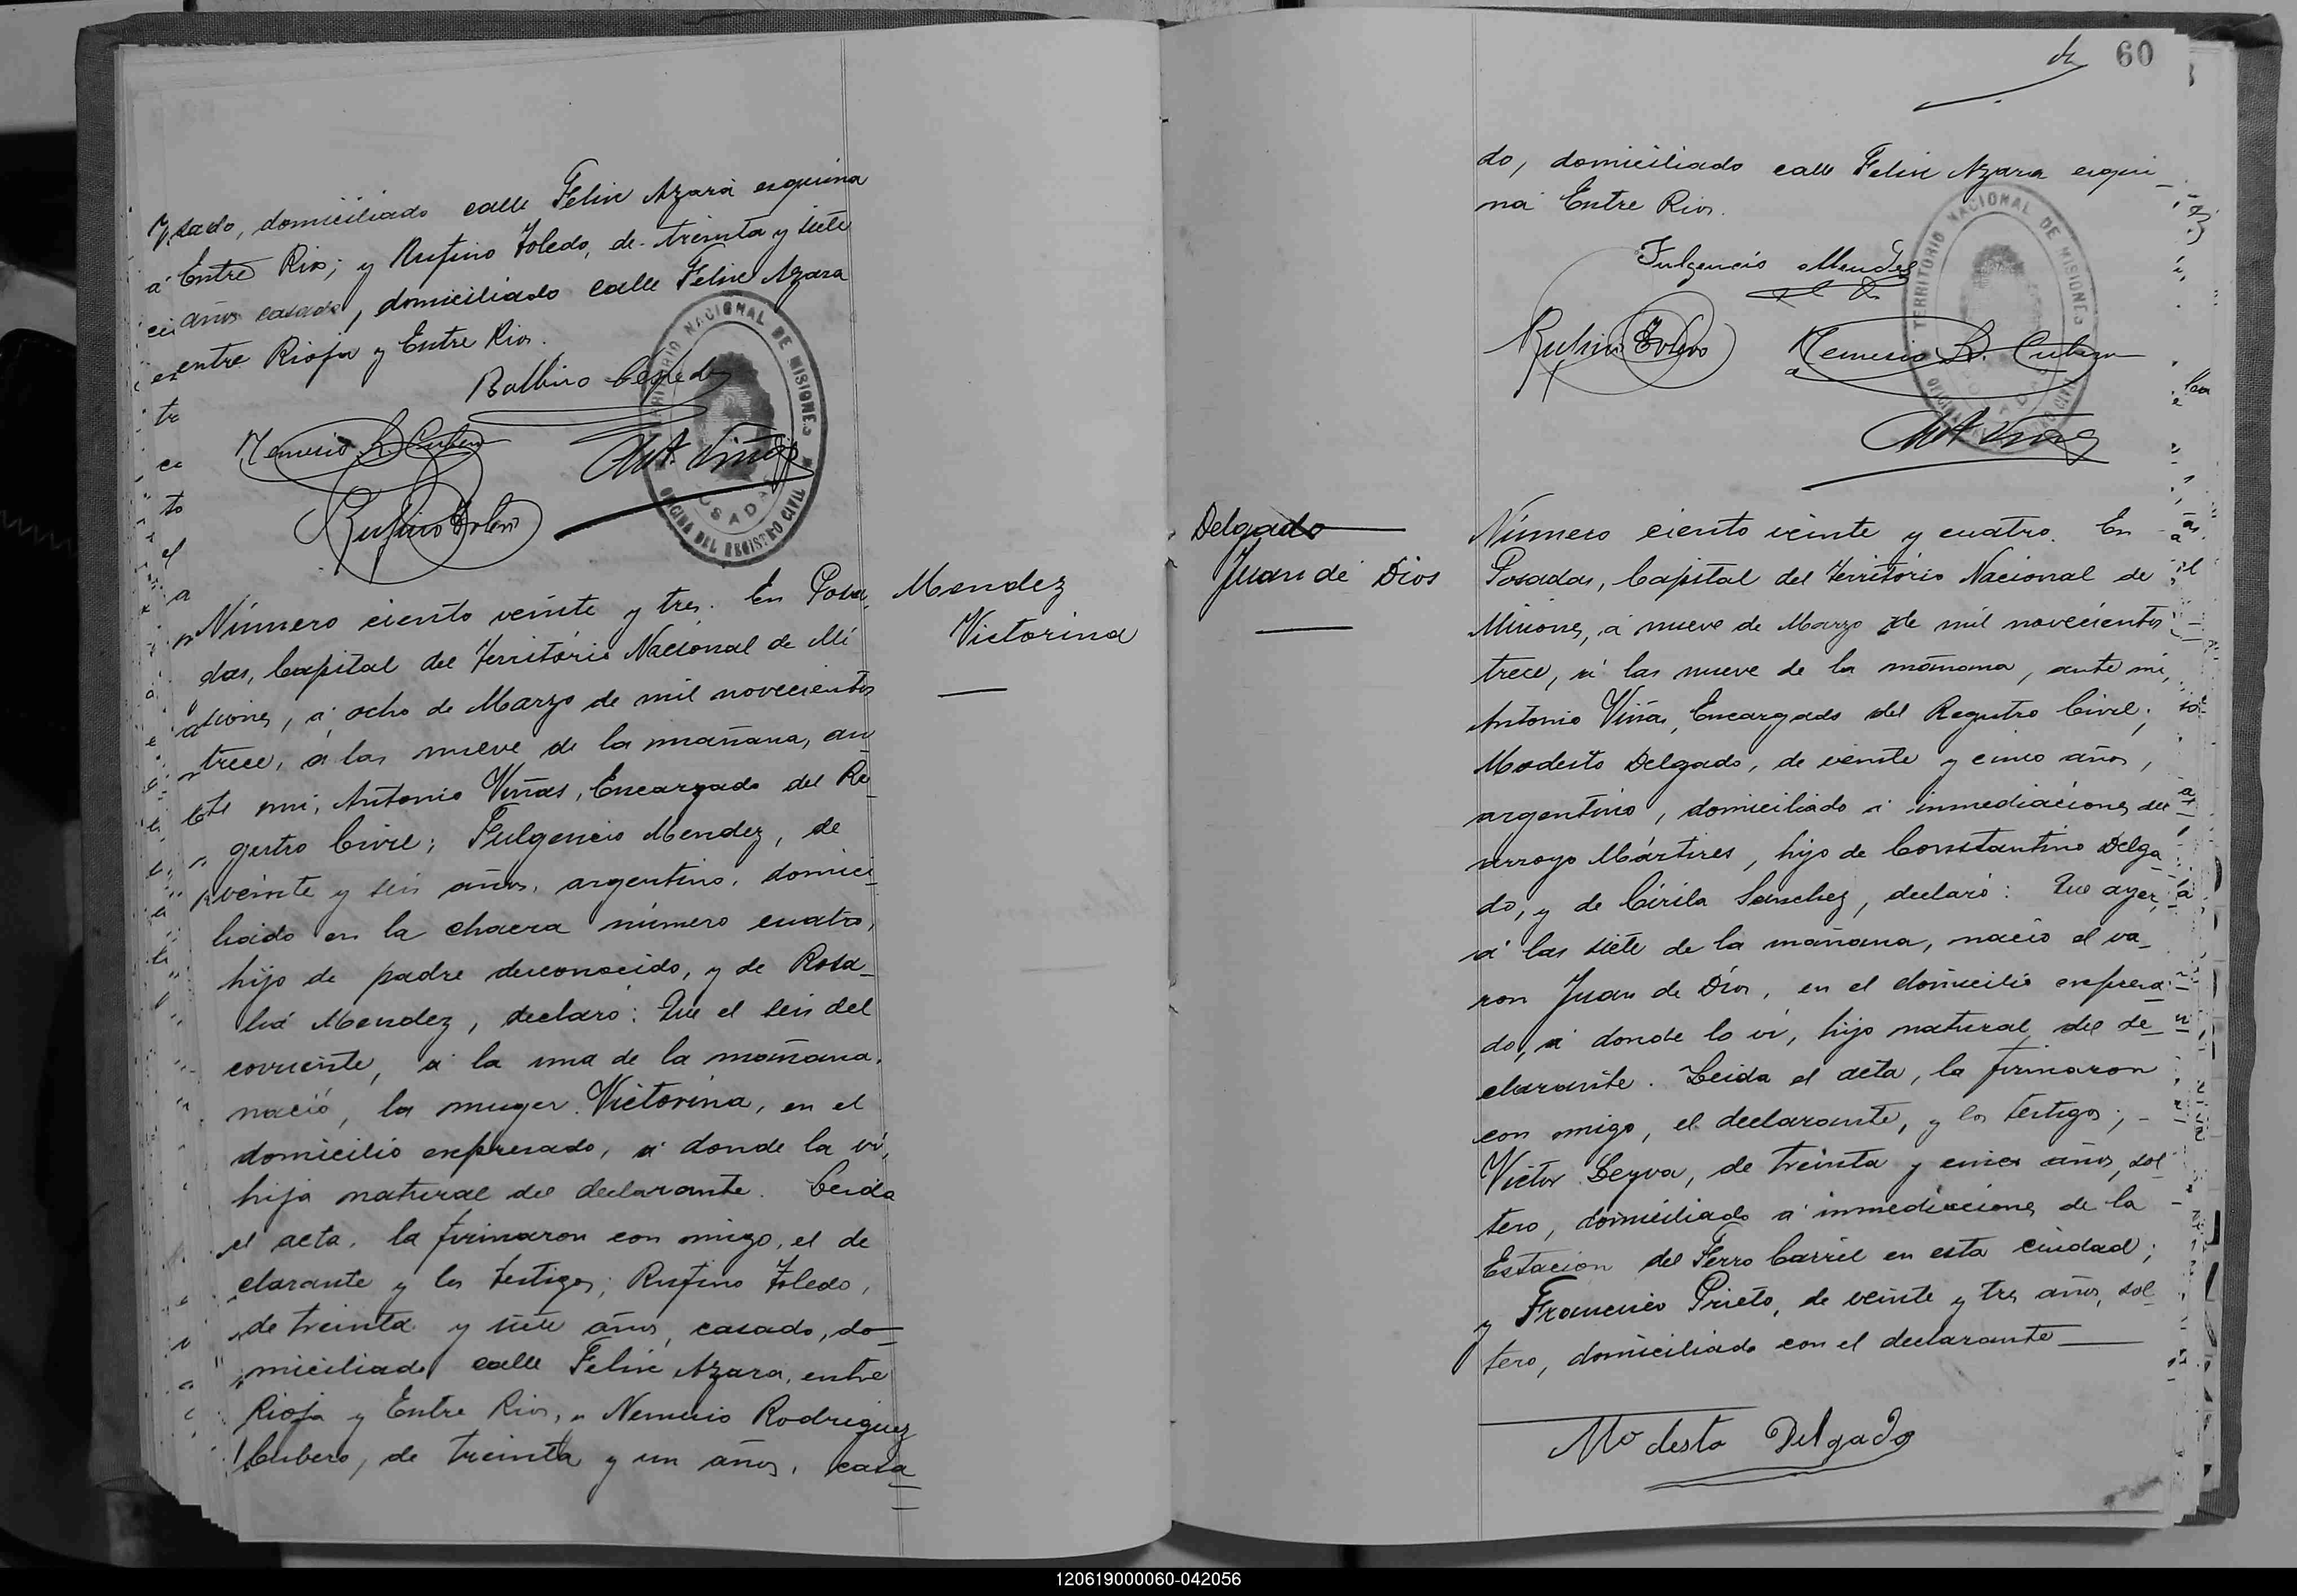 sado, domiciliado calle Felix Azara esquina
Entre Rios; y Rufino Toledo, de treinta y siete
años casado, domiciliado calle Felix Azara
entre Rioja y Entre Rios.
Balbino Cespedes
Nemesio R. Cubero
Ant. Viñas
Rufino Toledo
TERRITORIO NACIONAL DE MISIONES
POSADAS
OFICINA DEL REGISTRO CIVIL
Mendez
Victorina
Número ciento veinte y tres. En Posa
das, Capital del Territorio Nacional de Mi
siones, á ocho de Marzo de mil novecientos
trece, á las nueve de la mañana, an
te mi, Antonio Viñas, Encargado del Re
gistro Civil; Fulgencio Mendez, de
veinte y seis años, argentino, domici
liado en la chacra número cuatro,
hijo de padre desconocido, y de Rosa
lia Mendez, declaró: Que el seis del
corriente, á la una de la mañana,
nació, la muger Victorina, en el
domicilio expresado, á donde la ví,
hija natural del declarante. Leida
el acta, la firmaron con migo, el de
clarante y los testigos; Rufino Toledo,
de treinta y siete años, casado, do
miciliado calle Felix Azara, entre
Rioja y Entre Rios, y Nemesio Rodriguez
Cubero, de treinta y un años, casa
60
do, domiciliado calle Felix Azara esqui
na Entre Rios.
Fulgencio Mendez
Rufino Toledo
Nemesio R. Cubero
Ant Viñas
TERRITORIO NACIONAL DE MISIONES
POSADAS
OFICINA DEL REGISTRO CIVIL
Delgado
Juan de Dios
Número ciento veinte y cuatro. En
Posadas, Capital del Territorio Nacional de
Misiones, á nueve de Marzo de mil novecientos
trece, á las nueve de la mañana, ante mi,
Antonio Viñas, Encargado del Registro Civil;
Modesto Delgado, de veinte y cinco años,
argentino, domiciliado á inmediaciones del
arroyo Mártires, hijo de Constantino Delga
do, y de Cirila Sanchez, declaró: Que ayer,
á las siete de la mañana, nació el va
ron Juan de Dios, en el domicilio expresa
do, á donde lo ví, hijo natural del de
clarante. Leida el acta, la firmaron
con migo, el declarante, y los testigos;
Victor Leyva, de treinta y cinco años, sol
tero, domiciliado á inmediaciones de la
Estación del Ferro Carril en esta ciudad;
y Francisco Prieto, de veinte y tres años, sol
tero, domiciliado con el declarante
Modesto Delgado
120619000060-042056